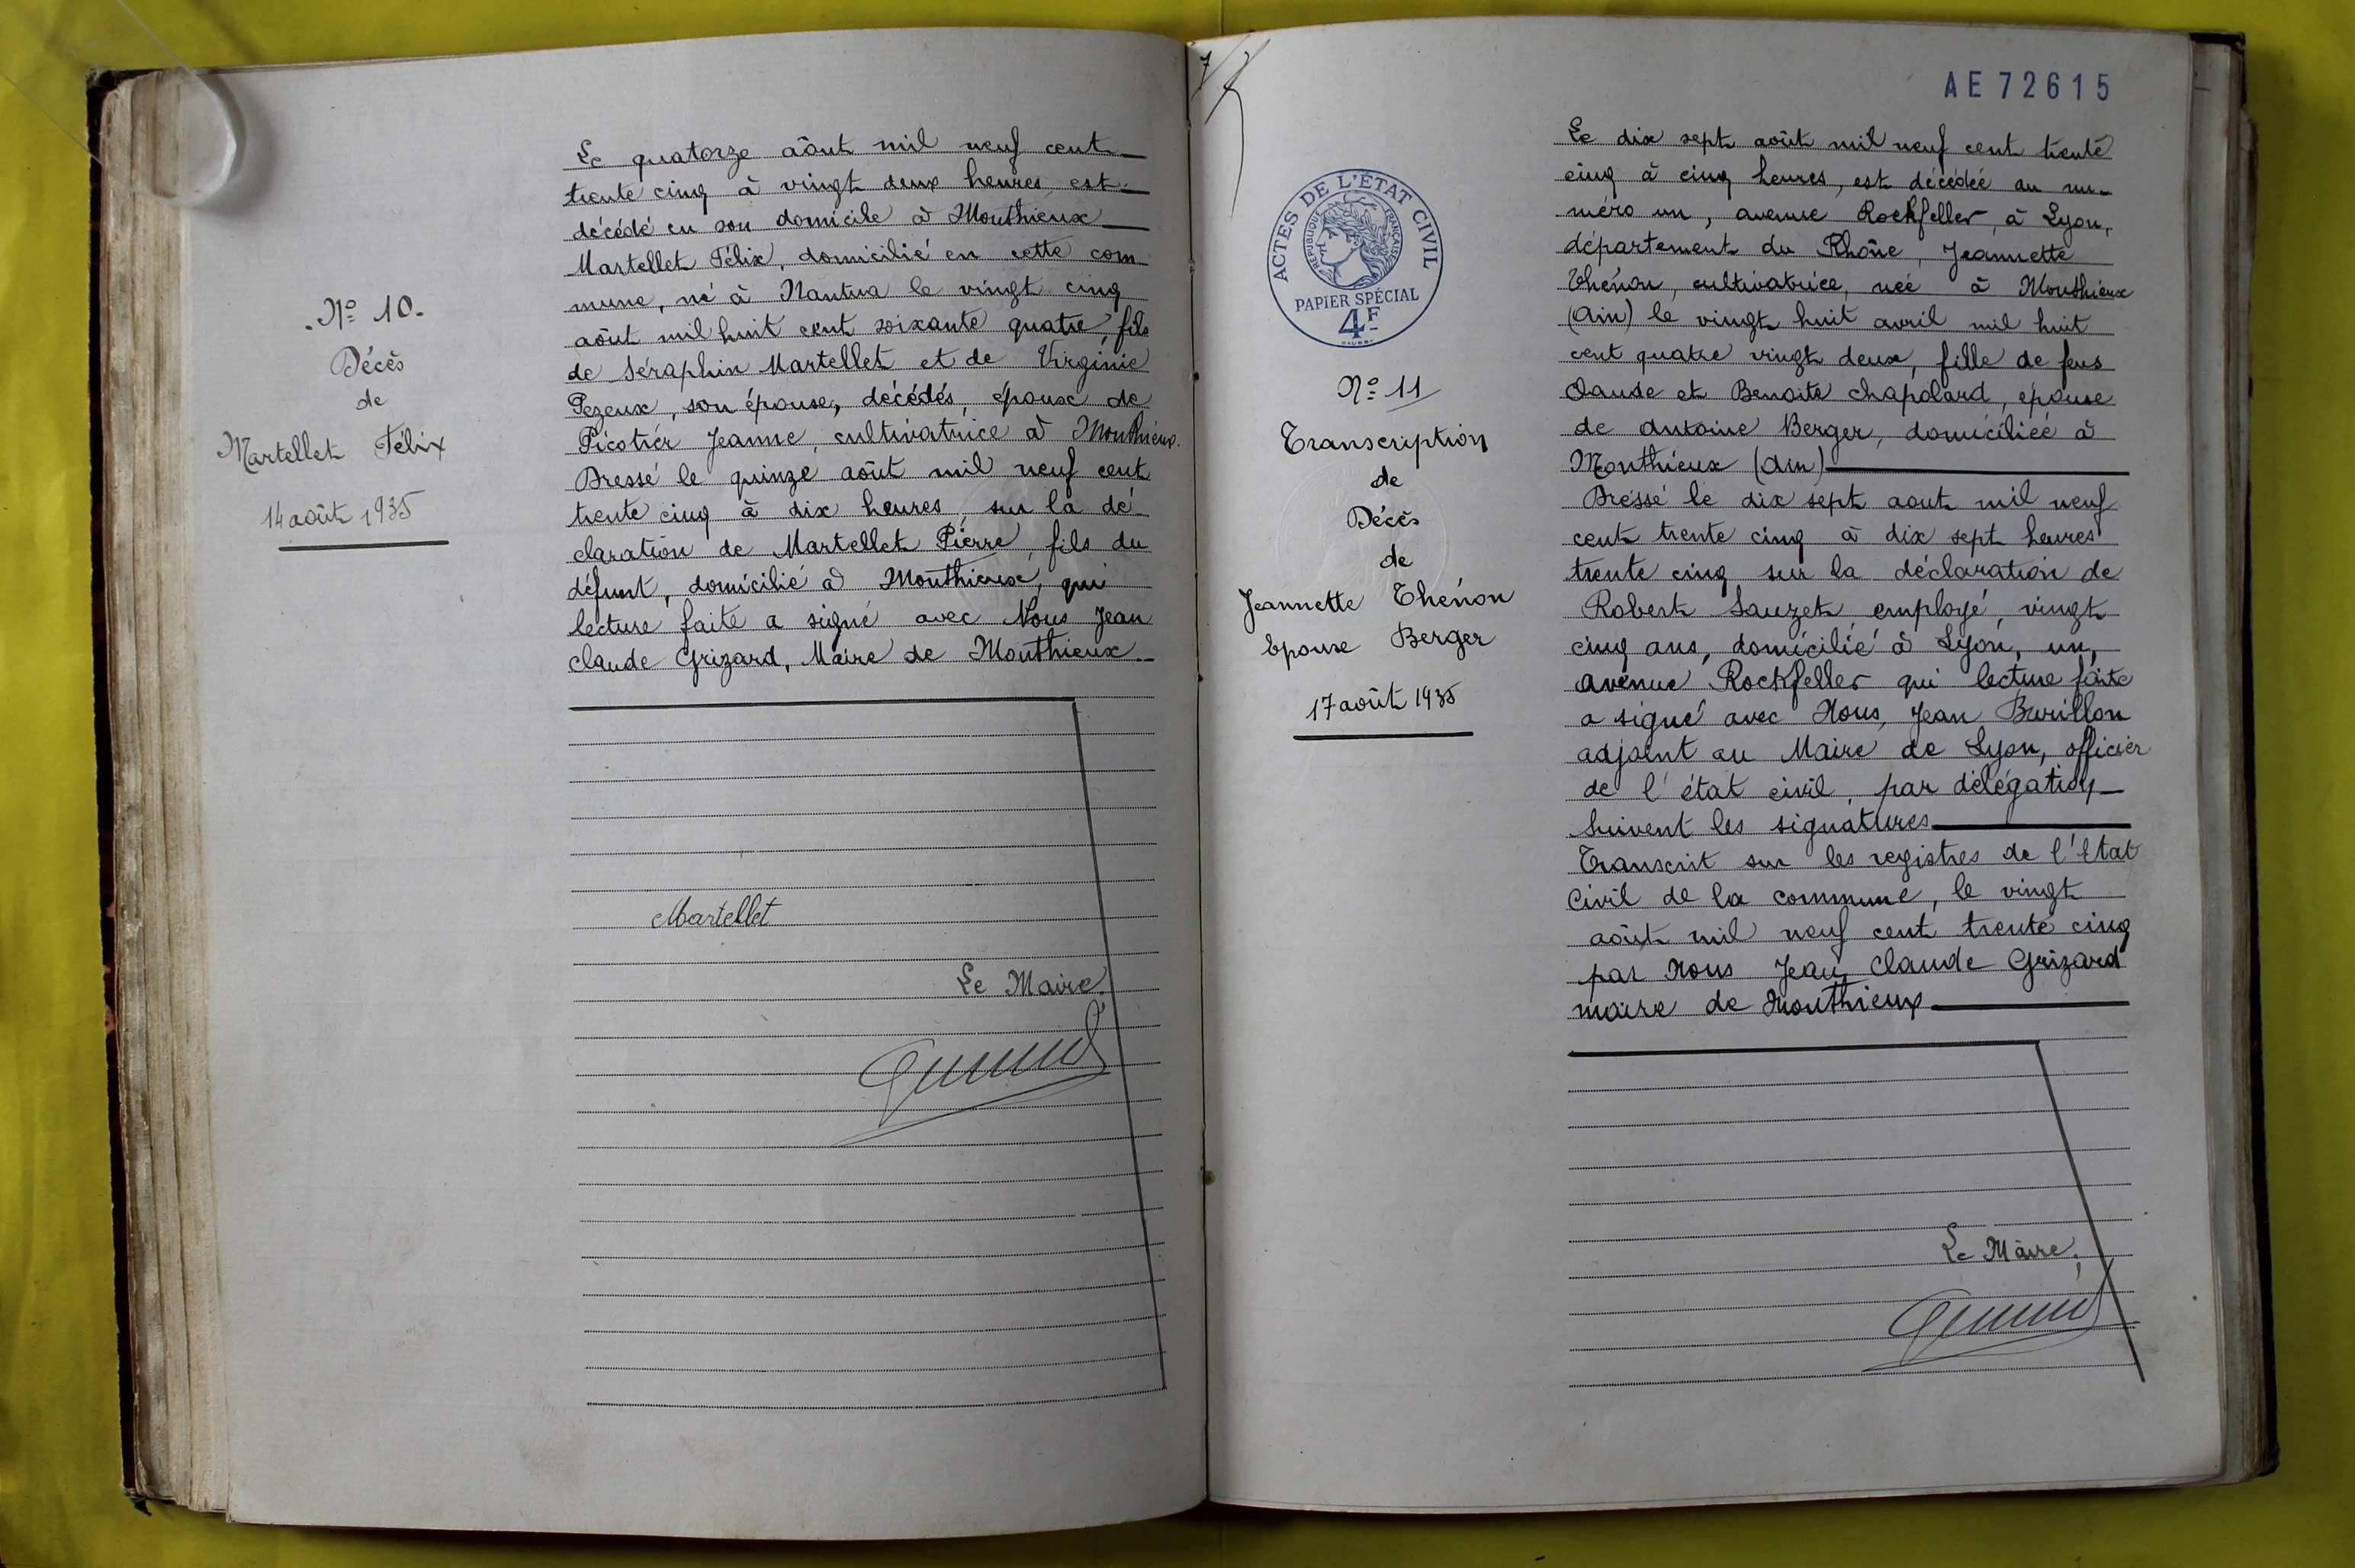 Le quatorze août mil neuf cent
trente cinq à vingt deux heures, est
décédé en son domicile à Monthieux
Martellet Félix, domicilié en cette com
mune, né à Nantua le vingt cinq
août mil huit cent soixante quatre, fils
de Séraphin Martellet et de Virginie
Pezeux, son épouse, décédés, époux de
Picotier Jeanne, cultivatrice à Monthieux.
Dressé le quinze août mil neuf cent
trente cinq à dix heures, sur la dé
claration de Martellet Pierre, fils du
défunt, domicilié à Monthieux, qui
lecture faite a signé avec Nous Jean
Claude Grizard, Maire de Monthieux.
N° 10.
Décès
de
Martellet Félix
14 août 1935
Martellet
Le Maire
AE 72615
ACTES DE L'ÉTAT CIVIL
RÉPUBLIQUE FRANÇAISE
PAPIER SPÉCIAL
4F
N° 11
Transcription
de
Décès
de
Jeannette Thénon
Epouse Berger
17 août 1935
Le dix sept août mil neuf cent trente
cinq à cinq heures, est décédée au nu-
méro un, avenue Rockfeller, à Lyon,
département du Rhône, Jeannette
Thénon, cultivatrice, née à Monthieux
(Ain) le vingt huit avril mil huit
cent quatre vingt deux, fille de feus
Claude et Benoite Chapolard, épouse
de Antoine Berger, domiciliée à
Monthieux (Ain)
Dressé le dix sept aout mil neuf
cent trente cinq à dix sept heures
trente cinq sur la déclaration de
Robert Sauzet, employé, vingt
cinq ans, domicilié à Lyon, un,
avenue Rockfeller qui lecture faite
a signé avec Nous, Jean Burillon
adjoint au Maire de Lyon, officier
de l'état civil, par délégation
Suivent les signatures
Transcrit sur les registres de l'Etat
Civil de la commune, le vingt
août mil neuf cent trente cinq
par Nous Jean Claude Grizard
maire de Monthieux
Le Maire,